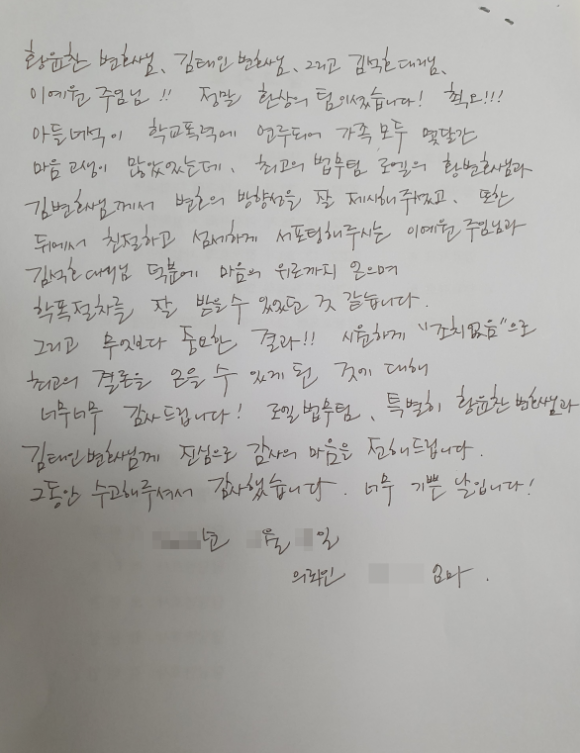 황윤찬 변호사님, 김태인 변호사님, 그리고 김석호 대리님,
이예원 주임님!! 정말 환상의 팀이셨습니다! 최고!!!
아들녀석이 학교폭력에 연루되어 가족 모두 몇달간
마음 고생이 많았었는데, 최고의 법무팀 로엘의 황변호사님과
김변호사님께서 변호의 방향성을 잘 제시해주셨고, 또한
뒤에서 친절하고 섬세하게 서포팅해주시는 이예원 주임님과
김석호 대리님 덕분에 마음의 위로까지 얻으며
학폭절차를 잘 밟을수 있었던 것 같습니다.
그리고 무엇보다 중요한 결과!! 시원하게 "조치없음"으로
최고의 결론을 얻을 수 있게 된 것에 대해
너무너무 감사드립니다! 로엘 법무팀, 특별히 황윤찬 변호사님과
김태인변호사님께 진심으로 감사의 마음을 전해드립니다.
그동안 수고해주셔서 감사했습니다. 너무 기쁜 날입니다!
년 월 일
의뢰인 엄마.